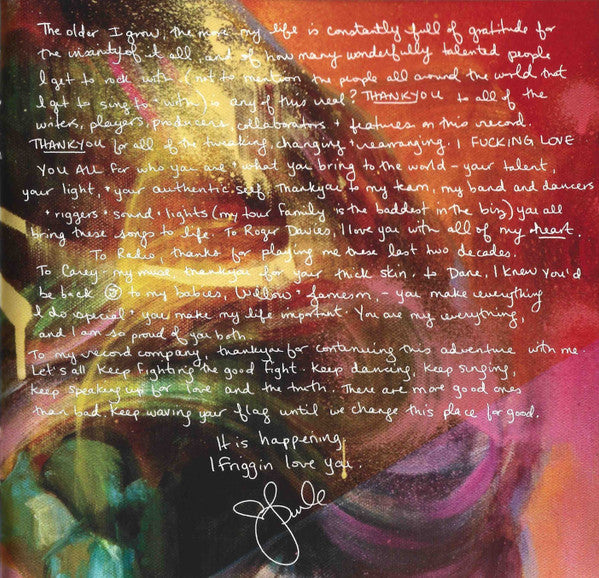 The older I grow, the more my life is constantly full of gratitude for
the insanity of it all. and of how many wonderfully talented people
I get to rock with (not to mention the people all around the world that
I get to sing to + with) is any of this real? THANKYOU to all of the
writers, players, producers, collaborators + features on this record.
THANKYOU for all of the tweaking, changing + rearranging. I FUCKING LOVE
YOU ALL for who you are + what you bring to the world - your talent,
your light, + your authentic self. Thankyou to my team, my band and dancers
+ riggers + sound + lights (my tour family is the baddest in the biz) you all
bring these songs to life. To Roger Davies, I love you with all of my heart.
To Radio, thanks for playing me these last two decades.
To Carey - my muse, thankyou for your thick skin. to Dane, I knew you'd
be back ☺ to my babies, Willow + Jameson, - you make everything
I do special + you make my life important. You are my everything,
and I am so proud of you both.
To my record company, thankyou for continuing this adventure with me.
Let's all keep fighting the good fight. Keep dancing, keep singing,
keep speaking up for love and the truth. There are more good ones
than bad. Keep waving your flag until we change this place for good.
It is happening
I friggin love you.